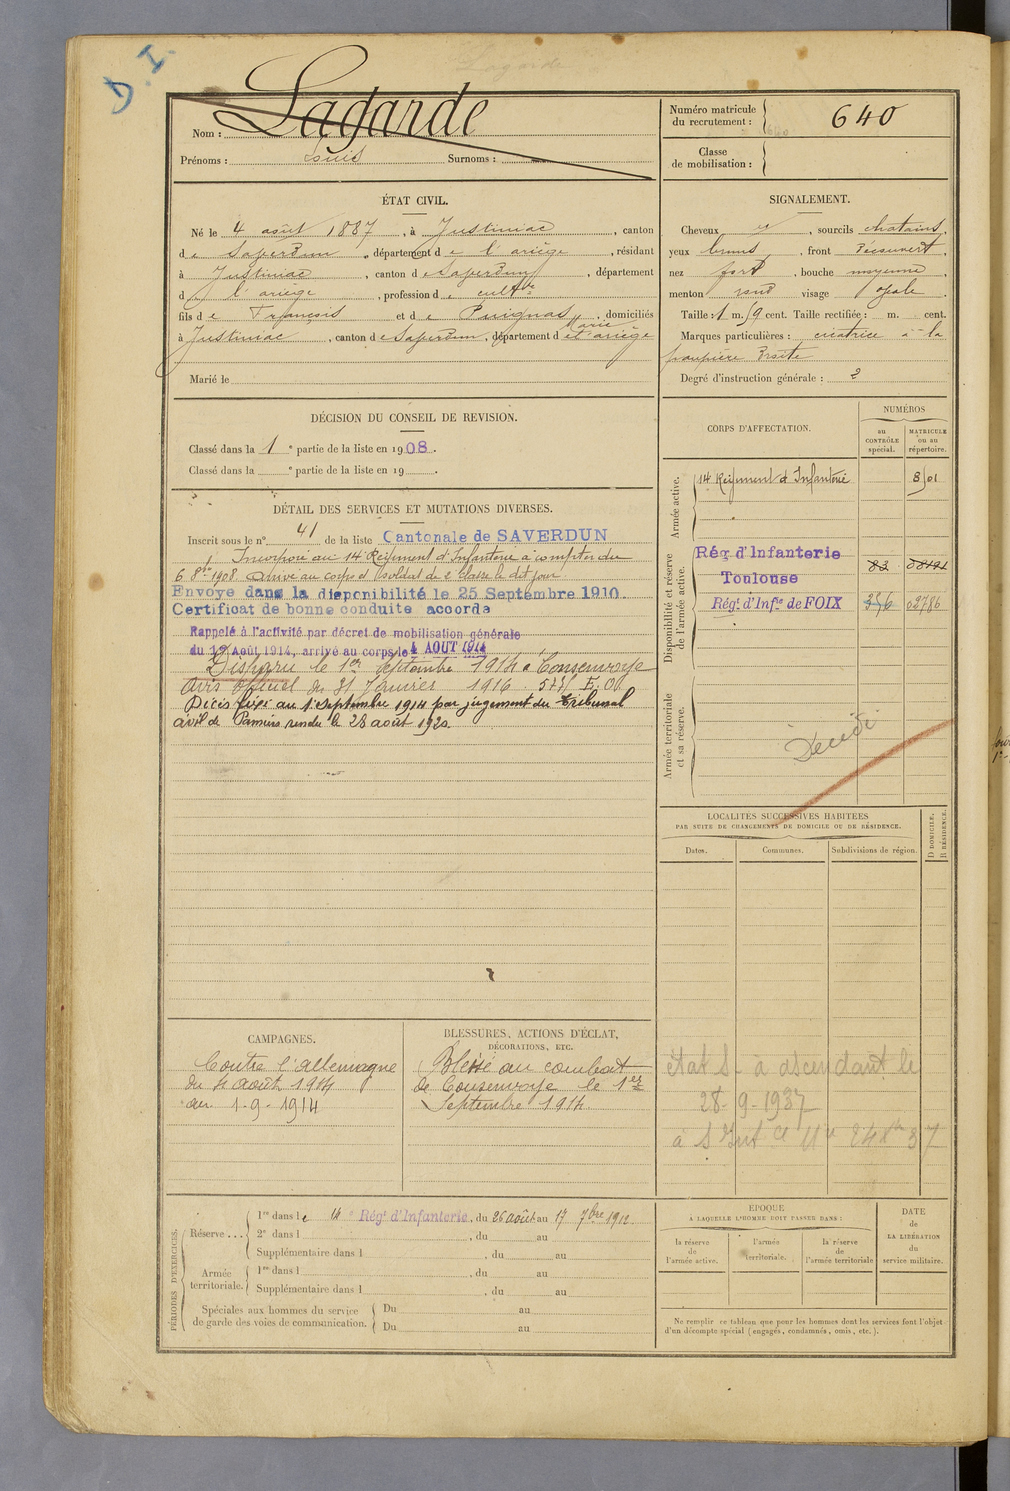 D. I.
Lagarde
Nom : Lagarde
Prénoms : Louis Surnoms :
Numéro matricule du recrutement : 640
Classe de mobilisation :
ÉTAT CIVIL.
Né le 4 août 1887, à Justiniac, canton
de Saverdun, département de l'ariège, résidant
à Justiniac, canton de Saverdun, département
d l'ariège, profession de cultr
fils de François et de Puignas Marie, domiciliés
à Justiniac, canton de Saverdun, département d et ariège
Marié le
SIGNALEMENT.
Cheveux , sourcils chatains,
yeux bruns, front découvert,
nez fort, bouche moyenne,
menton rond visage ovale.
Taille : 1 m. 59 cent. Taille rectifiée : m. cent.
Marques particulières : cicatrice à la
paupière droite
Degré d'instruction générale : 2
DÉCISION DU CONSEIL DE REVISION.
Classé dans la 1e partie de la liste en 1908.
Classé dans la e partie de la liste en 19 .
DÉTAIL DES SERVICES ET MUTATIONS DIVERSES.
Inscrit sous le n° 41 de la liste Cantonale de SAVERDUN
Incorporé au 14 Régiment d'Infanterie à compter du
6 8bre 1908. Arrivé au corps et soldat de 2e classe le dit jour
Envoyé dans la disponibilité le 25 Septembre 1910.
Certificat de bonne conduite accordé
Rappelé à l'activité par décret de mobilisation générale
du 1er Août 1914, arrivé au corps le 4 AOUT 1914
Disparu le 1er septembre 1914 à Consenvoye
Avis officiel du 31 Janvier 1916
Décès fixé au 1 septembre 1914 par jugement du Tribunal
civil de Pamiers rendu le 28 août 1920
CORPS D'AFFECTATION.
NUMÉROS
au CONTRÔLE spécial.
MATRICULE ou au répertoire.
Armée active.
14 Régiment d'Infanterie 8501
Disponibilité et réserve de l'armée active.
Rég d'Infanterie
Toulouse
83
Régt d'Infie de FOIX 356 02786
Armée territoriale et sa réserve.
LOCALITÉS SUCCESSIVES HABITÉES
PAR SUITE DE CHANGEMENTS DE DOMICILE OU DE RÉSIDENCE.
Dates. Communes. Subdivisions de région. D DOMICILE. R RÉSIDENCE.
CAMPAGNES.
Contre l'allemagne
du 4 août 1914
au 1-9-1914
BLESSURES, ACTIONS D'ÉCLAT,
DÉCORATIONS, ETC.
Blessé au combat
de Consenvoye le 1er
Septembre 1914.
état S à ascendant le
28-9-1937
PÉRIODES D'EXERCICES.
Réserve....
1re dans le 14e Régt d'Infanterie, du 26 août au 17 7bre 1912.
2e dans l , du au
Supplémentaire dans l , du au
Armée territoriale.
1re dans l , du au
Supplémentaire dans l , du au
Spéciales aux hommes du service
de garde des voies de communication.
Du au
Du au
ÉPOQUE
À LAQUELLE L'HOMME DOIT PASSER DANS :
la réserve de l'armée active.
l'armée territoriale.
la réserve de l'armée territoriale
DATE DE LA LIBÉRATION du service militaire.
Ne remplir ce tableau que pour les hommes dont les services font l'objet
d'un décompte spécial (engagés, condamnés, omis, etc.).